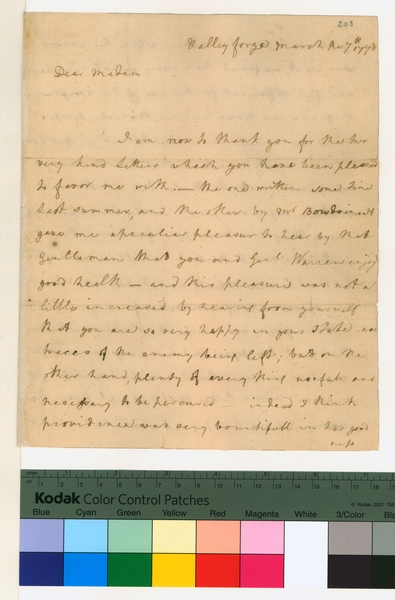 208
Valley forge March the 7th 1778
Dear Madam
I am now to thank you for the two
very kind Letters which you have been pleased
to favor me with. — the one written some time
last summer, and the other by Mr Bowdoin. it
gave me a peculiar pleasur to hear by that
Gentleman that you and Genl Warren enjoy
good healh — and this pleasure was not a
little increased by hearing from yourself
that you are so very happy in your State — no
traces of the enemy being left; but on the
other hand, plenty of every thing usefull and
necessary to be procured — indeed I think
providence was very bountifull in her good
ness
Kodak Color Control Patches
© Kodak, 2007
Blue Cyan Green Yellow Red Magenta White 3/Color